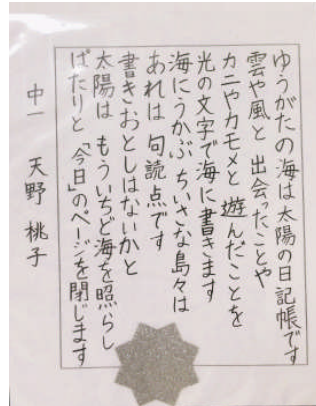 ゆうがたの海は太陽の日記帳です
雲や風と 出会ったことや
カニやカモメと 遊んだことを
光の文字で海に書きます
海にうかぶ ちいさな島々は
あれは 句読点です
書きおとしはないかと
太陽は もういちど海を照らし
ぱたりと 「今日」のページを閉じます
中一 天野 桃子